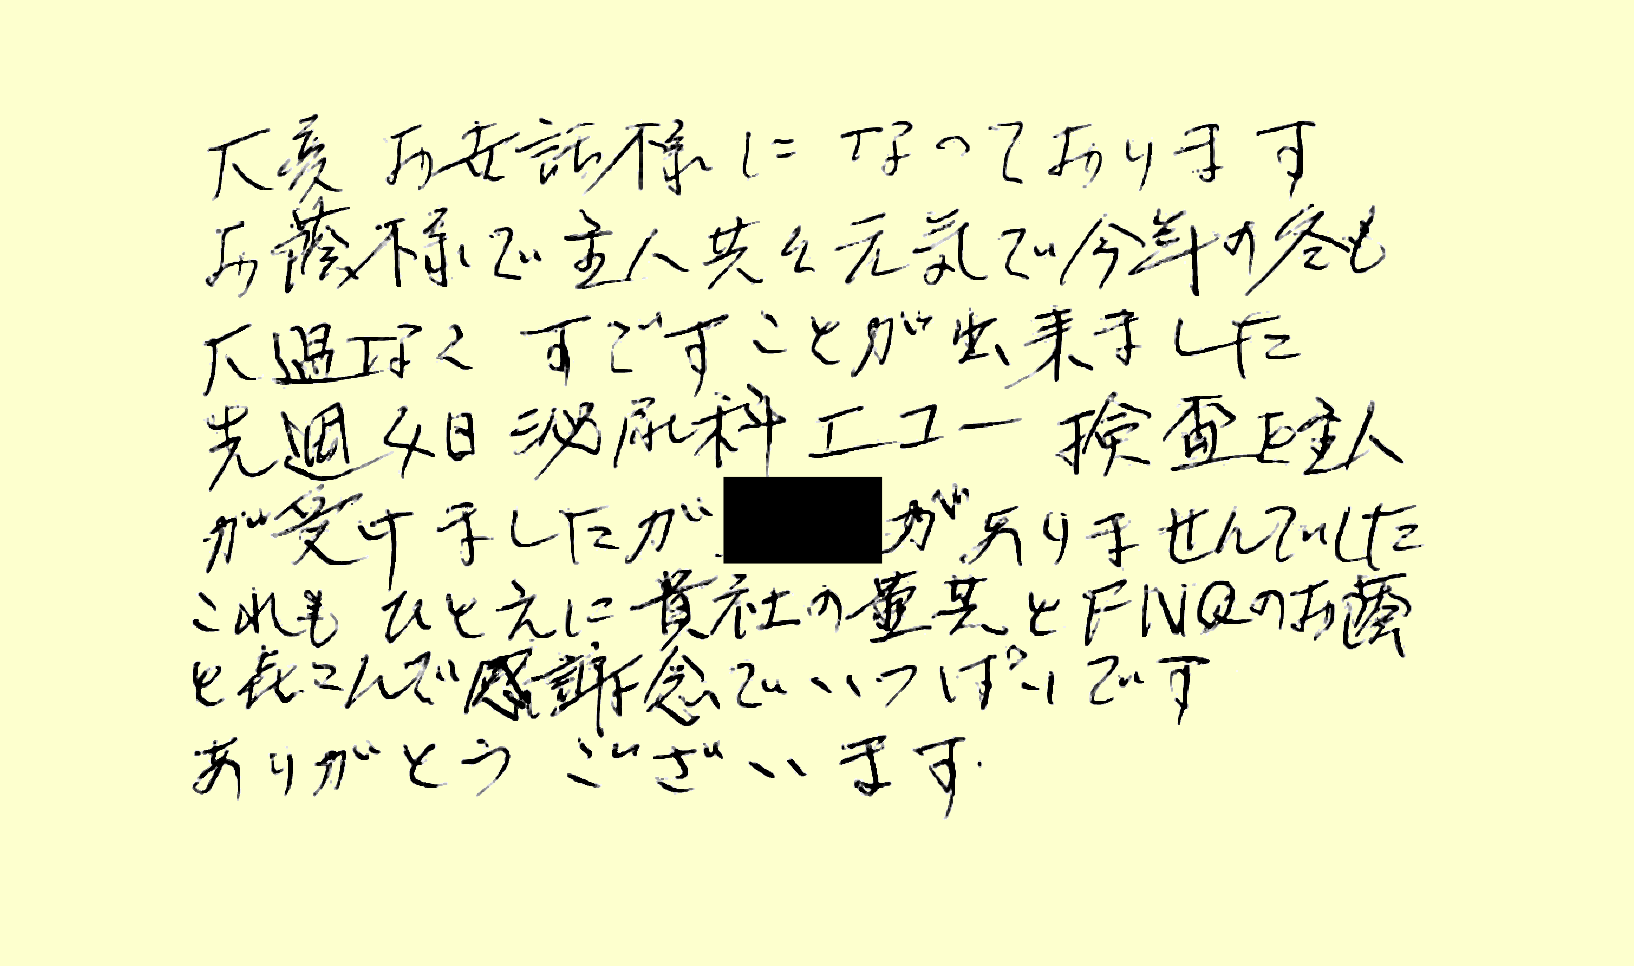 大変お世話様になっております
お蔭様で主人共々元気で今年の冬も
大過なくすごすことが出来ました
先週4日泌尿科エコー検査を主人
が受けましたが がありませんでした
これもひとえに貴社の とFNQのお蔭
と喜こんで感謝念でいっぱいです
ありがとうございます.